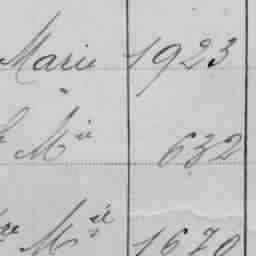 Marie 1923
"
Mie 632
Mie 1670